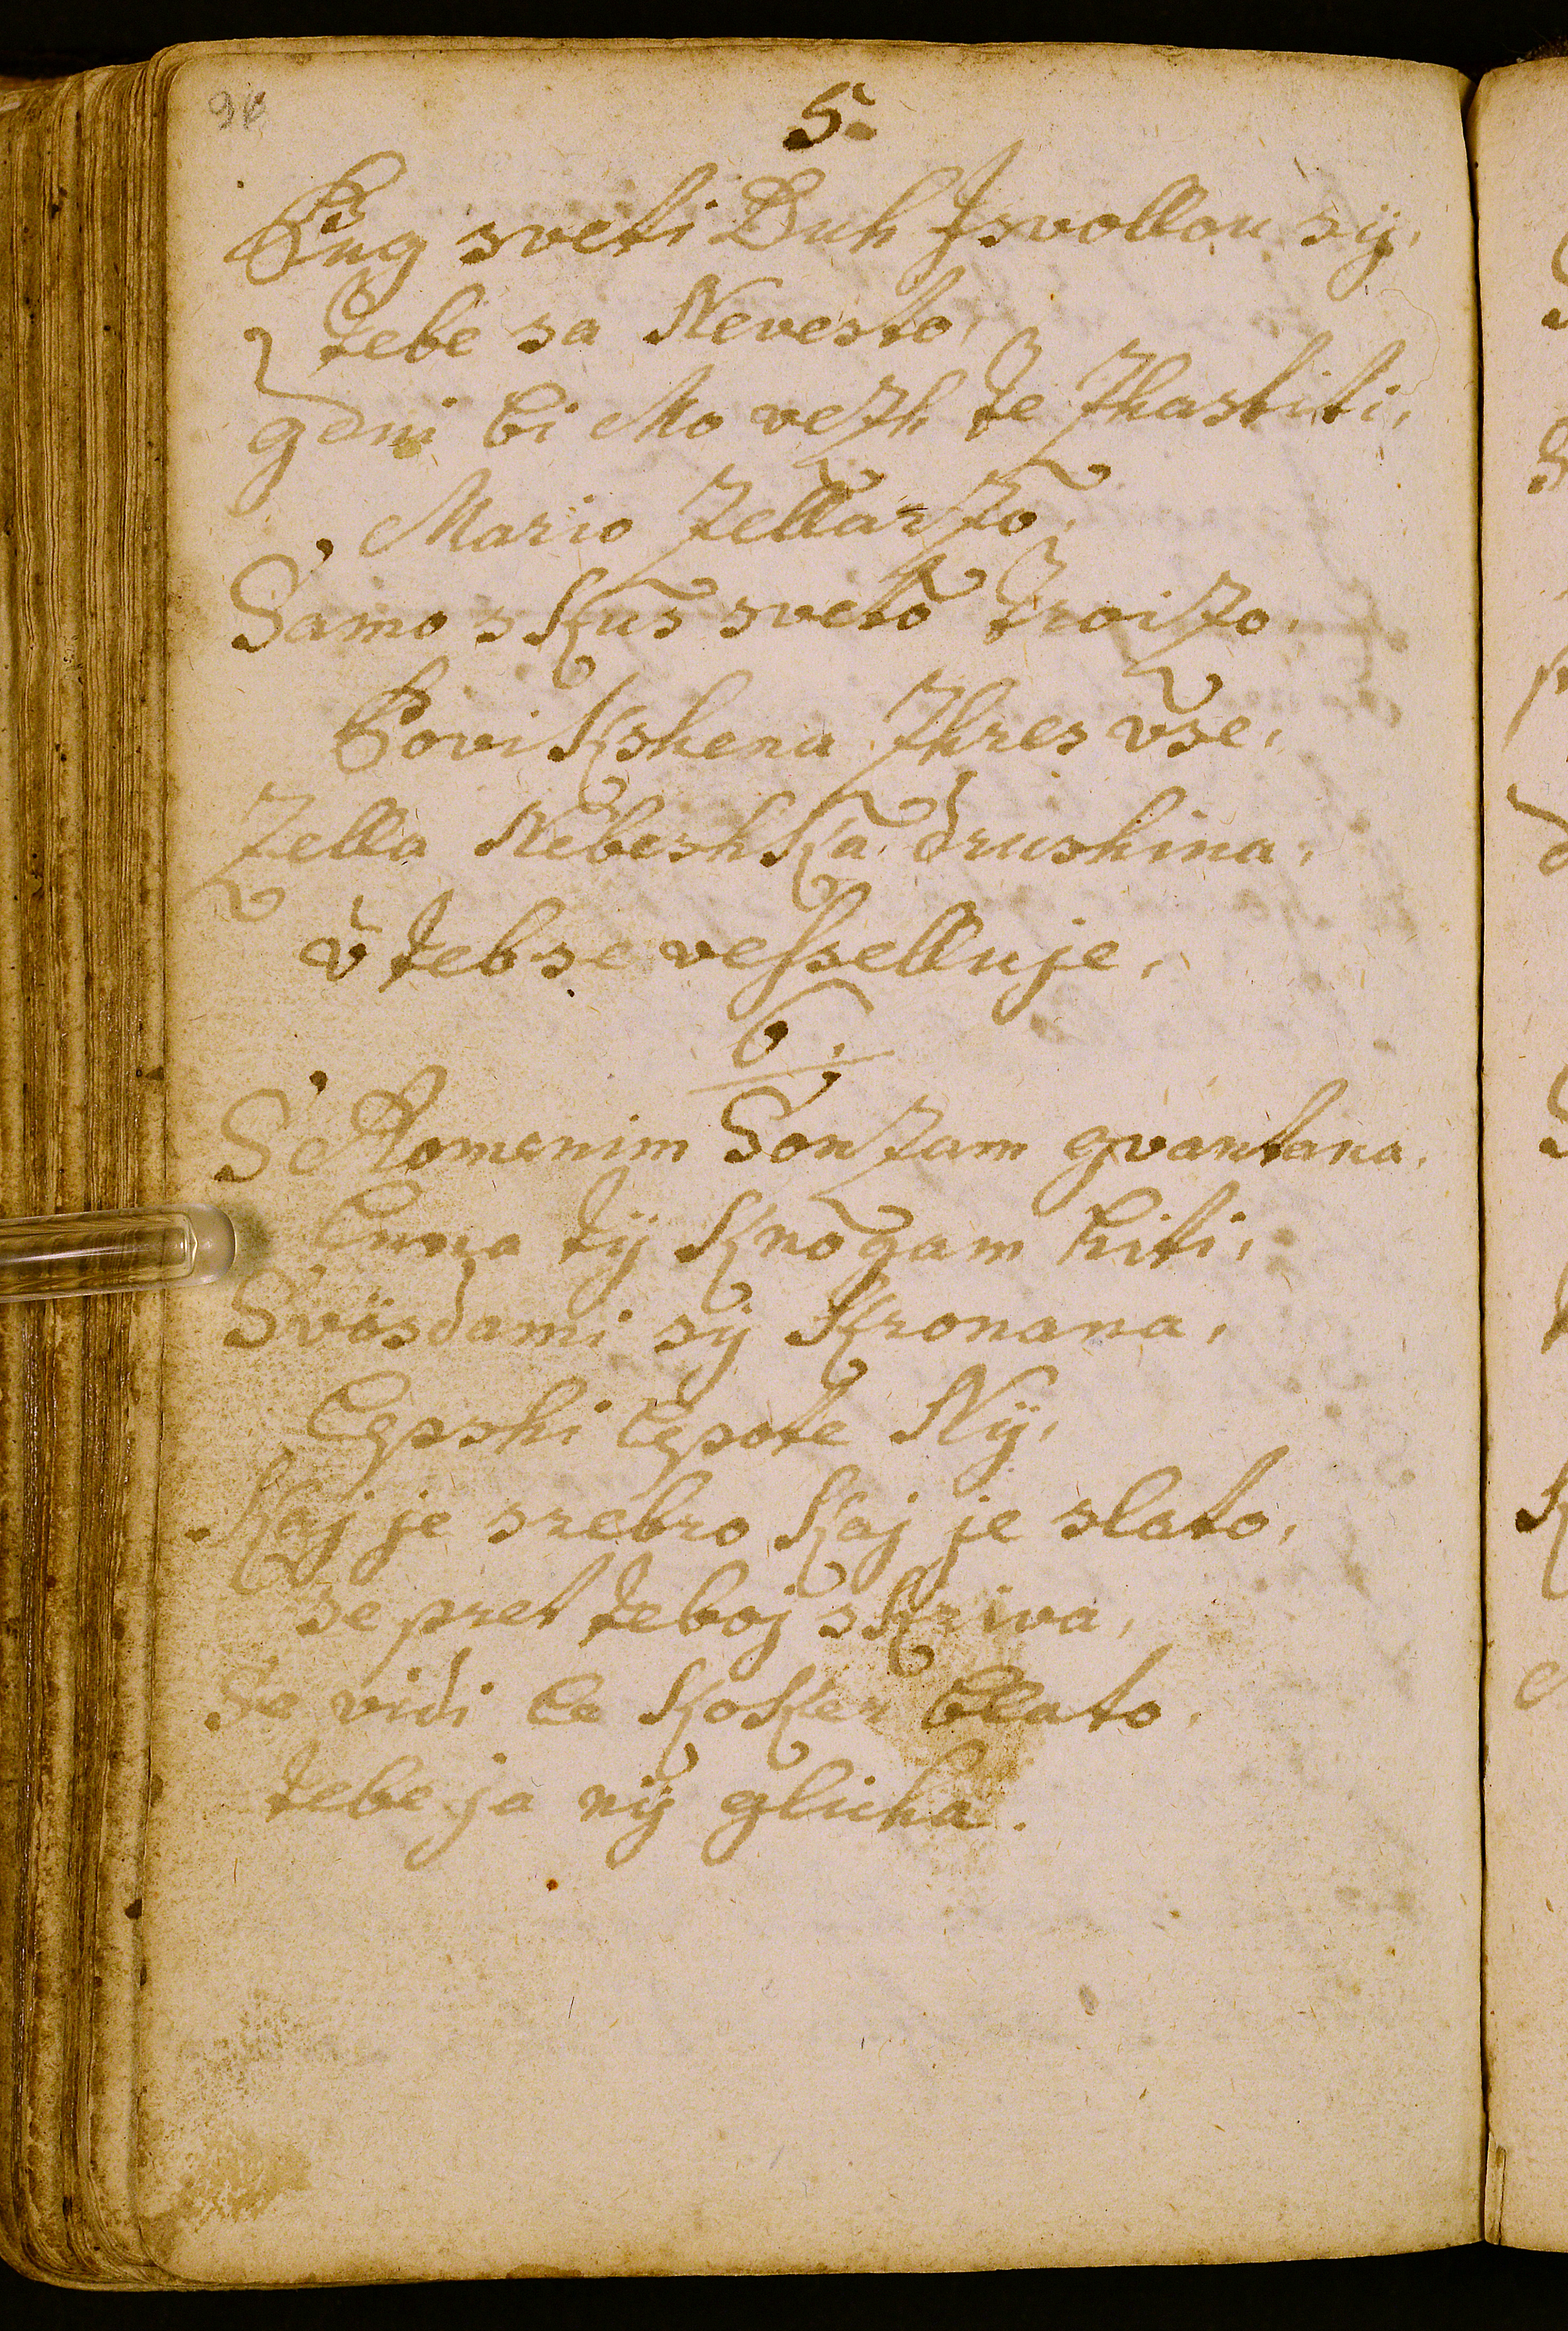 5.
Bug sveti Duh Isvollou sÿ,
tebe sa Nevesto,
gdui bi Mo vezh te zhastiti,
Mario Zellarzo,
Samo skus sveto troizo.
Povikshena zhres vse,
Zella Nebeshka drushina,
v teb se vesselluje,
6.
S Romenim Sonzam gvantana,
Lunna tÿ knogam hiti,
Svösdami sÿ kronana,
lepshi lepote Nÿ,
kaj je srebro kaj je slato,
se pret teboj skriva,
Se vidi le koker blato,
tebe ja nÿ glicha.